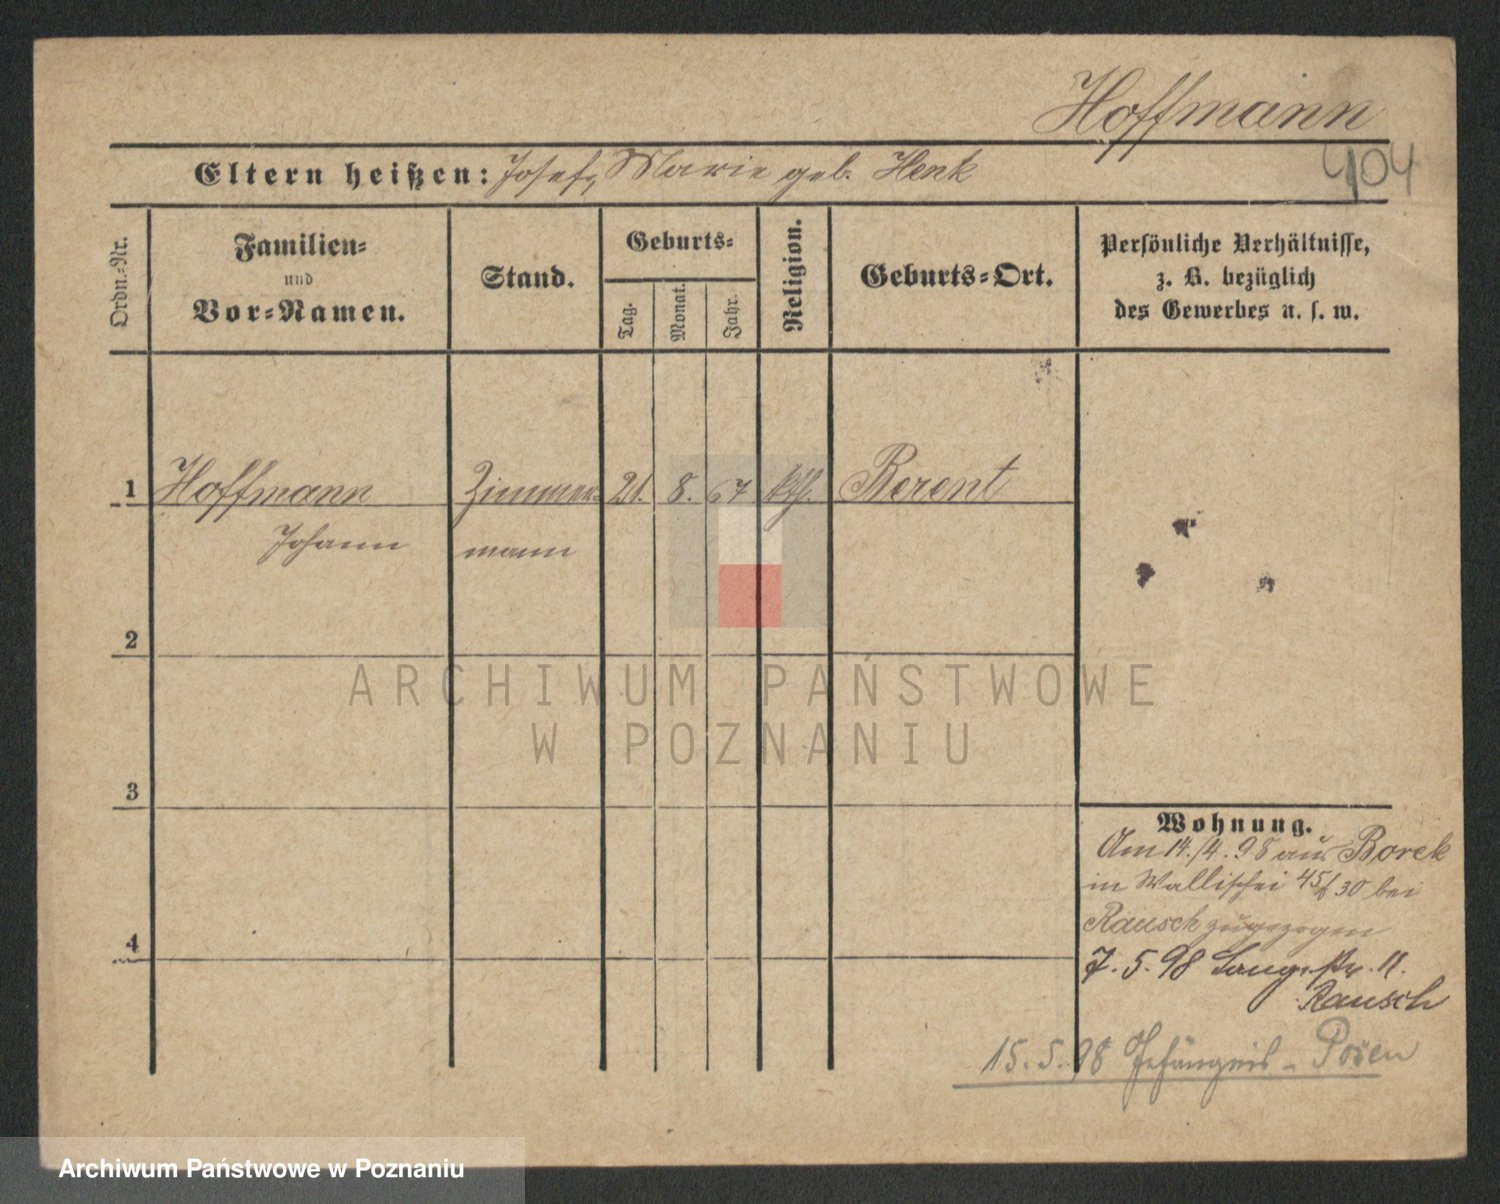 Hoffmann
404
Eltern heißen: Josef, Marie geb. Henk
Ordn.-Nr.
Familien-
und
Vor-Namen.
Stand.
Geburts-
Tag.
Monat.
Jahr.
Religion.
Geburts-Ort.
Persönliche Verhältnisse,
z. B. bezüglich
des Gewerbes u. s. w.
1 Hoffmann Zimmer- 21. 8. 67 kth. Berent
Johann mann
2
3
4
ARCHIWUM PAŃSTWOWE
W POZNANIU
Wohnung.
Am 14./4. 98 aus Borek
in Wallischei 45/ 30 bei
Rausch zugezogen
7. 5. 98 Langestr. 11.
Rausch
15. 5. 98 Gefängnis - Posen
Archiwum Państwowe w Poznaniu